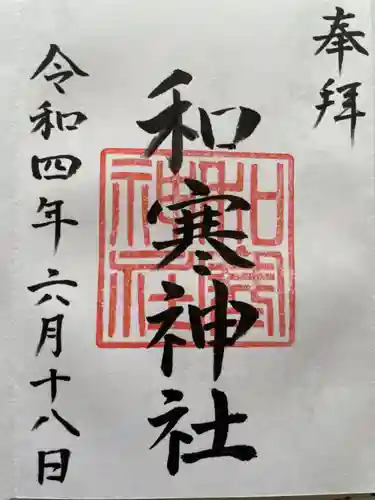 奉拝
和寒神社
令和四年六月十八日